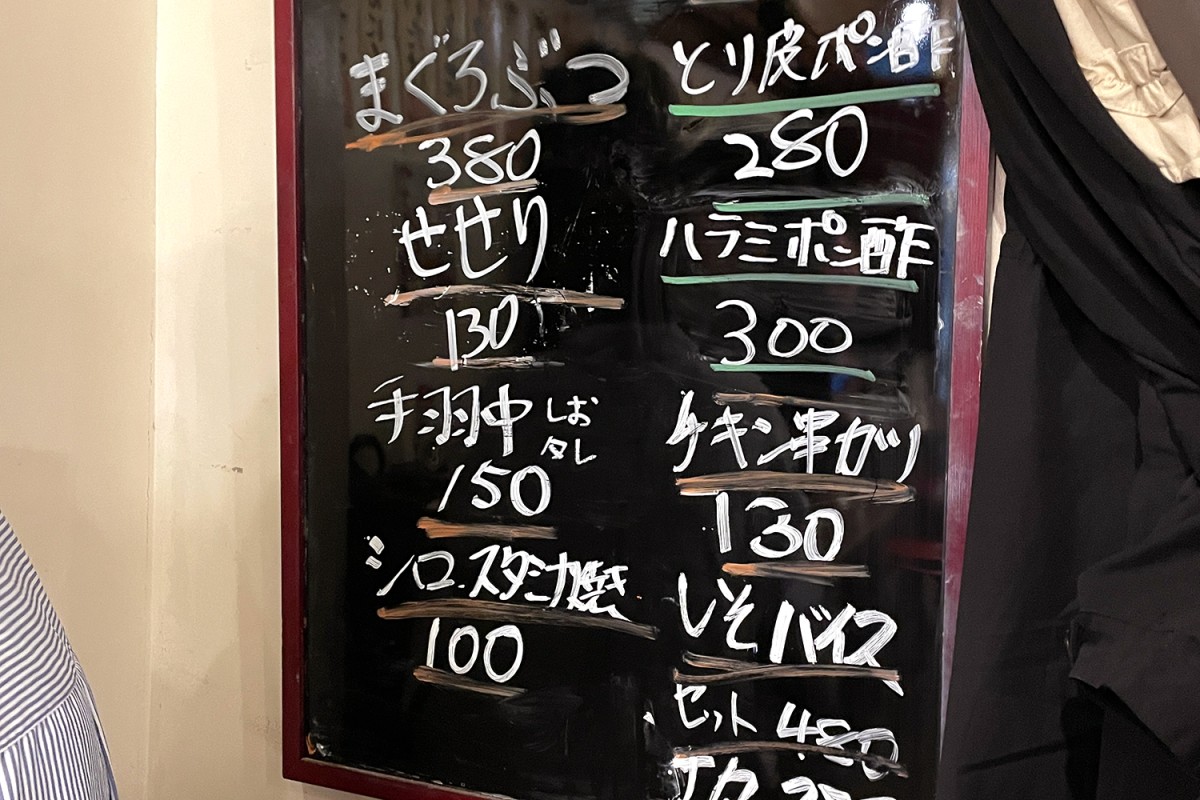 まぐろぶつ
380
せせり
130
手羽中 しお
タレ
150
シロ スタミナ焼き
100
とり皮ポン酢
280
ハラミポン酢
300
チキン串カツ
130
しそバイス
セット 480